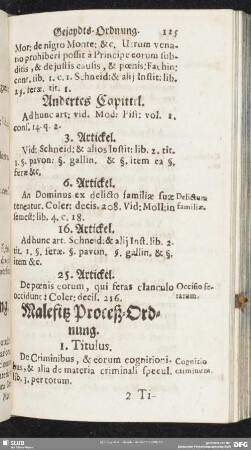 Gejaydts-Ordnung. 125
Mor: de nigro Monte: &c. Utrum vena-
tio prohiberi possit à Principe eorum sub-
ditis, & de justis causis, & pœnis: Fachin:
cont. lib. 1. c. 1. Schneid: & alij Instit: lib.
2. §. feræ. tit. 1.
Andertes Capittel.
Ad hunc art; vid. Mod: Pist: vol. 1.
cons. 14. q. 2.
3. Artickel.
Vid: Schneid: & alios Instit: lib. 2. tit.
1. §. pavon: §. gallin. & §. item ea §.
feræ &c.
6. Artickel.
An Dominus ex delicto familiæ suæ
teneatur. Coler: decis. 208. Vid; Moll: in
semest; lib. 4. c. 18.
Delictum
familiæ.
16. Artickel.
Ad hunc art. Schneid: & alij Inst. lib. 2.
tit. 1. §. feræ. §. pavon. §. gallin. & §.
item &c.
25. Artickel.
De pœnis eorum, qui feras clanculo
occidunt: Coler: decis. 216.
Occisio fe-
rarum.
Malefitz Proceß-Ord-
nung.
1. Titulus.
De Criminibus, & eorum cognitioni-
bus, & alia de materia criminali specul.
lib. 3. per totum.
Cognitio
criminum.
2 Ti-
SLUB